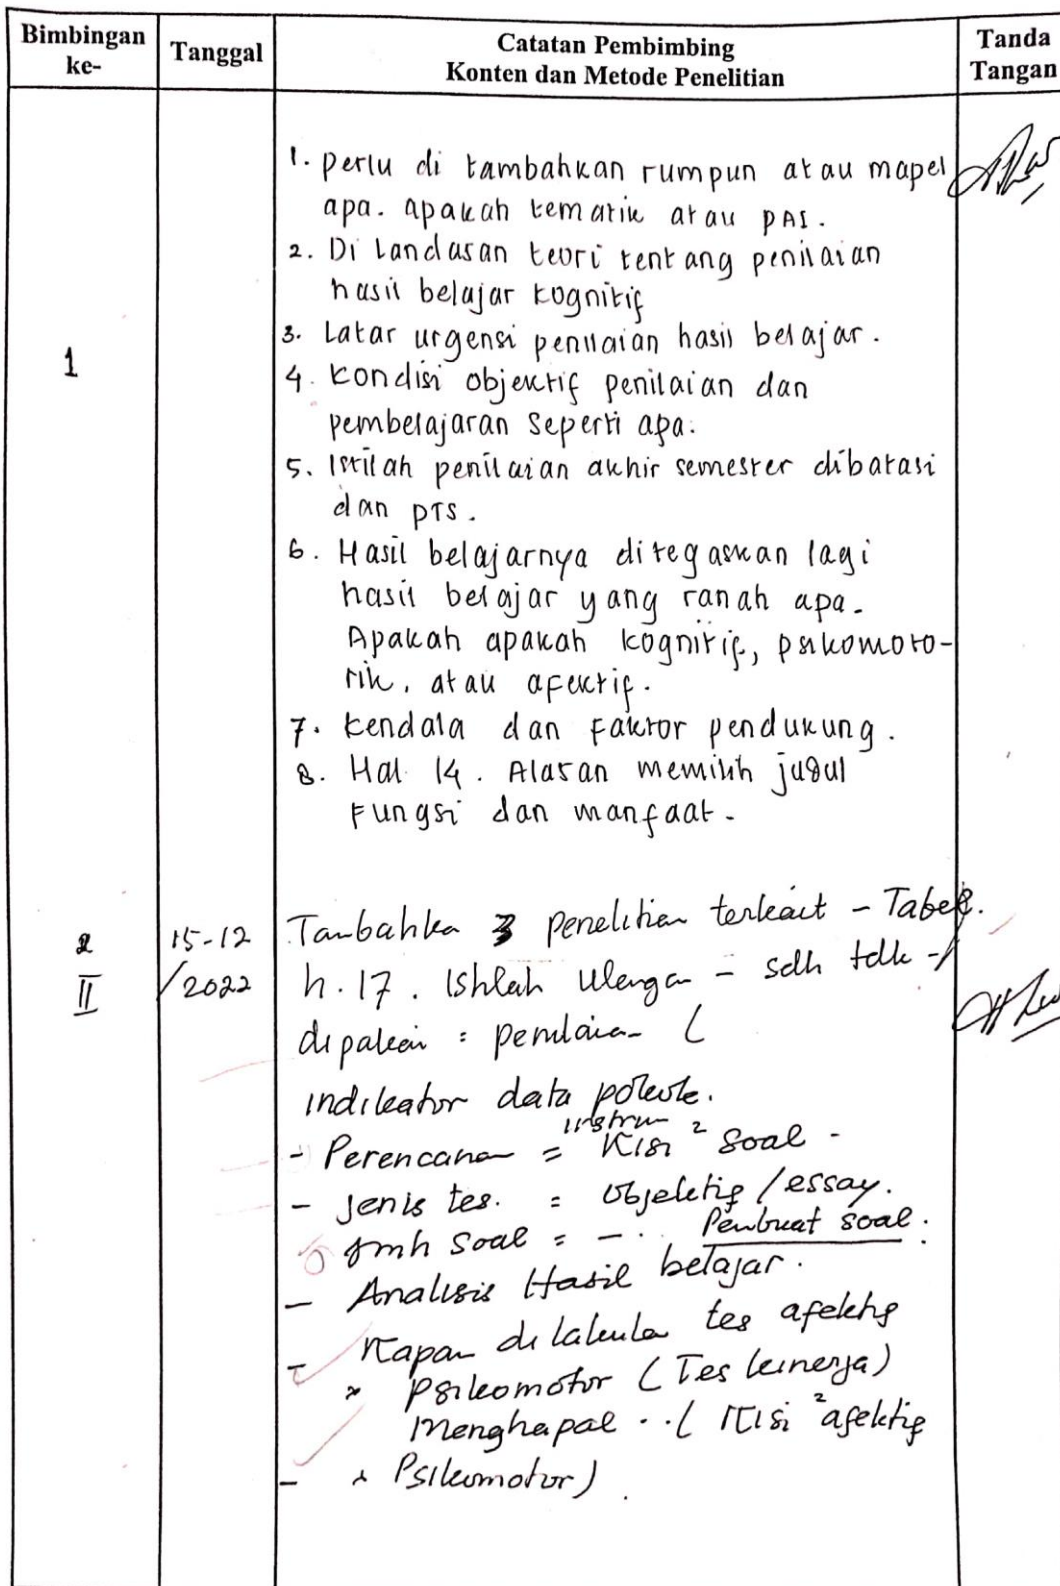 Bimbingan ke-
Tanggal
Catatan Pembimbing
Konten dan Metode Penelitian
Tanda Tangan
1
1. perlu di tambahkan rumpun atau mapel
apa. apakah tematik atau PAI.
2. Di Landasan teori tentang penilaian
hasil belajar kognitif
3. Latar urgensi penilaian hasil belajar.
4. Kondisi objektif penilaian dan
pembelajaran seperti apa.
5. Istilah penilaian akhir semester dibatasi
dan PTS.
6. Hasil belajarnya ditegaskan lagi
hasil belajar yang ranah apa.
Apakah apakah kognitif, psikomoto-
rik, atau afektif.
7. Kendala dan Faktor pendukung.
8. Hal 14. Alasan memilih judul
Fungsi dan manfaat.
2
II
15-12
/2022
Tambahka 3 penelitian terkait - Tabel.
h. 17. Ishlah Ulangan - sdh tdk
dipakai = penilaian (
indikator data pokok.
instrum
- Perencanaan = Kisi² soal -
- Jenis tes. = objektif / essay.
Jmh soal = - . Pembuat soal.
- Analisis Hasil belajar.
- Kapan dilakukan tes afektif
Psikomotor (Tes kinerja)
Menghapal .. ( Kisi² afektif
- Psikomotor)